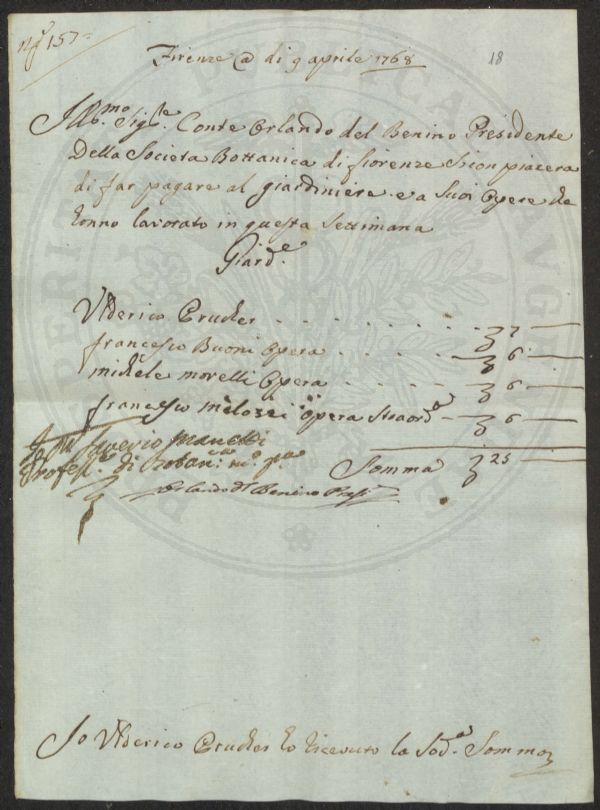 N° 157
18
Firenze @ di 9 aprile 1768
Ill.mo Sig.re Conte Orlando del Benino Presidente
Della Societa Bottanica di fiorenze Si conpiacera
di far pagare al giardiniere e a Suoi Opere che
hanno lavorato in questa Settimana
Giard.e
Ulderico Prucher 7
francesco Buoni Opera 6
michele morelli Opera 6
francesco melozzi opera Straord.a 6
Somma 25
Saverio Manetti
Profes.e di Botan.ca m.o p.a
Orlando Del Benino Pres.
Io Ulderico Prucher ho ricevuto la Sod.a Somma